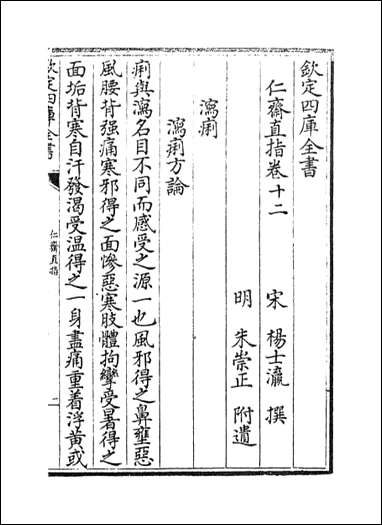 欽定四庫全書
仁齋直指卷十二
宋 楊士瀛 撰
明 朱崇正 附遺
瀉痢
瀉痢方論
痢與瀉名目不同而感受之源一也風邪得之鼻壅惡
風腰背強痛寒邪得之面慘惡寒肢體拘攣受暑得之
面垢背寒自汗發渴受温得之一身盡痛重着浮黄或
欽定四庫全書
仁齋直指